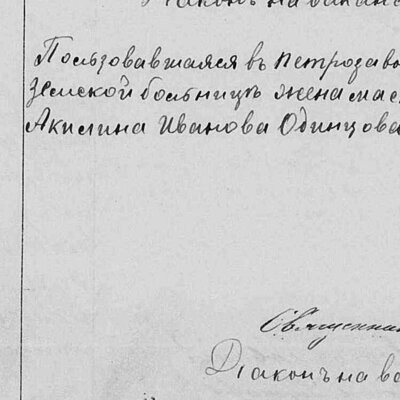 Діаконъ на вакан
Пользовавшаяся въ Петрозаво
земской больницѣ жена мас
Акилина Иванова Одинцова
Священни
Діаконъ на ва